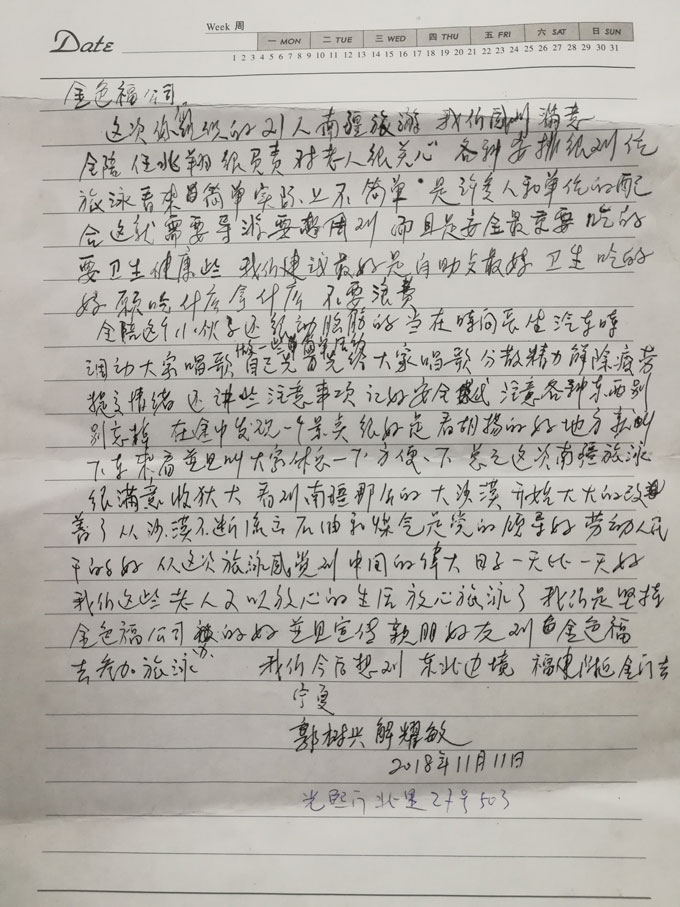 Week 周
Date
一 MON 二 TUE 三 WED 四 THU 五 FRI 六 SAT 日 SUN
1 2 3 4 5 6 7 8 9 10 11 12 13 14 15 16 17 18 19 20 21 22 23 24 25 26 27 28 29 30 31
金色福公司
这次你组织的21人南疆旅游 我们感到满意
全陪任兆翔很负责对老人很关心 各种安排很到位
旅泳看来简单实际上不简单 是许多人和单位的配
合这就需要导游要想周到 而且是安全最重要 吃的
要卫生健康些 我们建议最好是自助文散嫁 卫生 吃的
好 愿吃什広拿什広 不要浪费
全陪这个小伙子还很动脑筋的当在時间长坐汽车時
调动大家唱歌 自己先 大家唱歌分散精力解除疲劳
提高情绪 还讲些注意事项 记好安全 注意各种东西别
别忘掉 在途中发现一个景点很好是看胡扬的好地方就叫
下车来看並且叫大家休息一下方便一下 总之这次南疆旅泳
很满意收获大 看到南疆那広的大沙漠 开始大大的改
善了从沙漠不断流出石油和煤气是党的领导好 劳动人民
干的好 从这次旅泳感觉到中国的偉大日子一天比一天好
我们这些老人可以放心的生活放心旅泳了 我们是坚持
金色福公司 的好 並且宣传親朋好友到金色福
去参加旅泳 我们今后想到东北边境 福建 金门去
宁夏
郭树兴 解耀敏
2018年11月11日
光熙门北里27号503